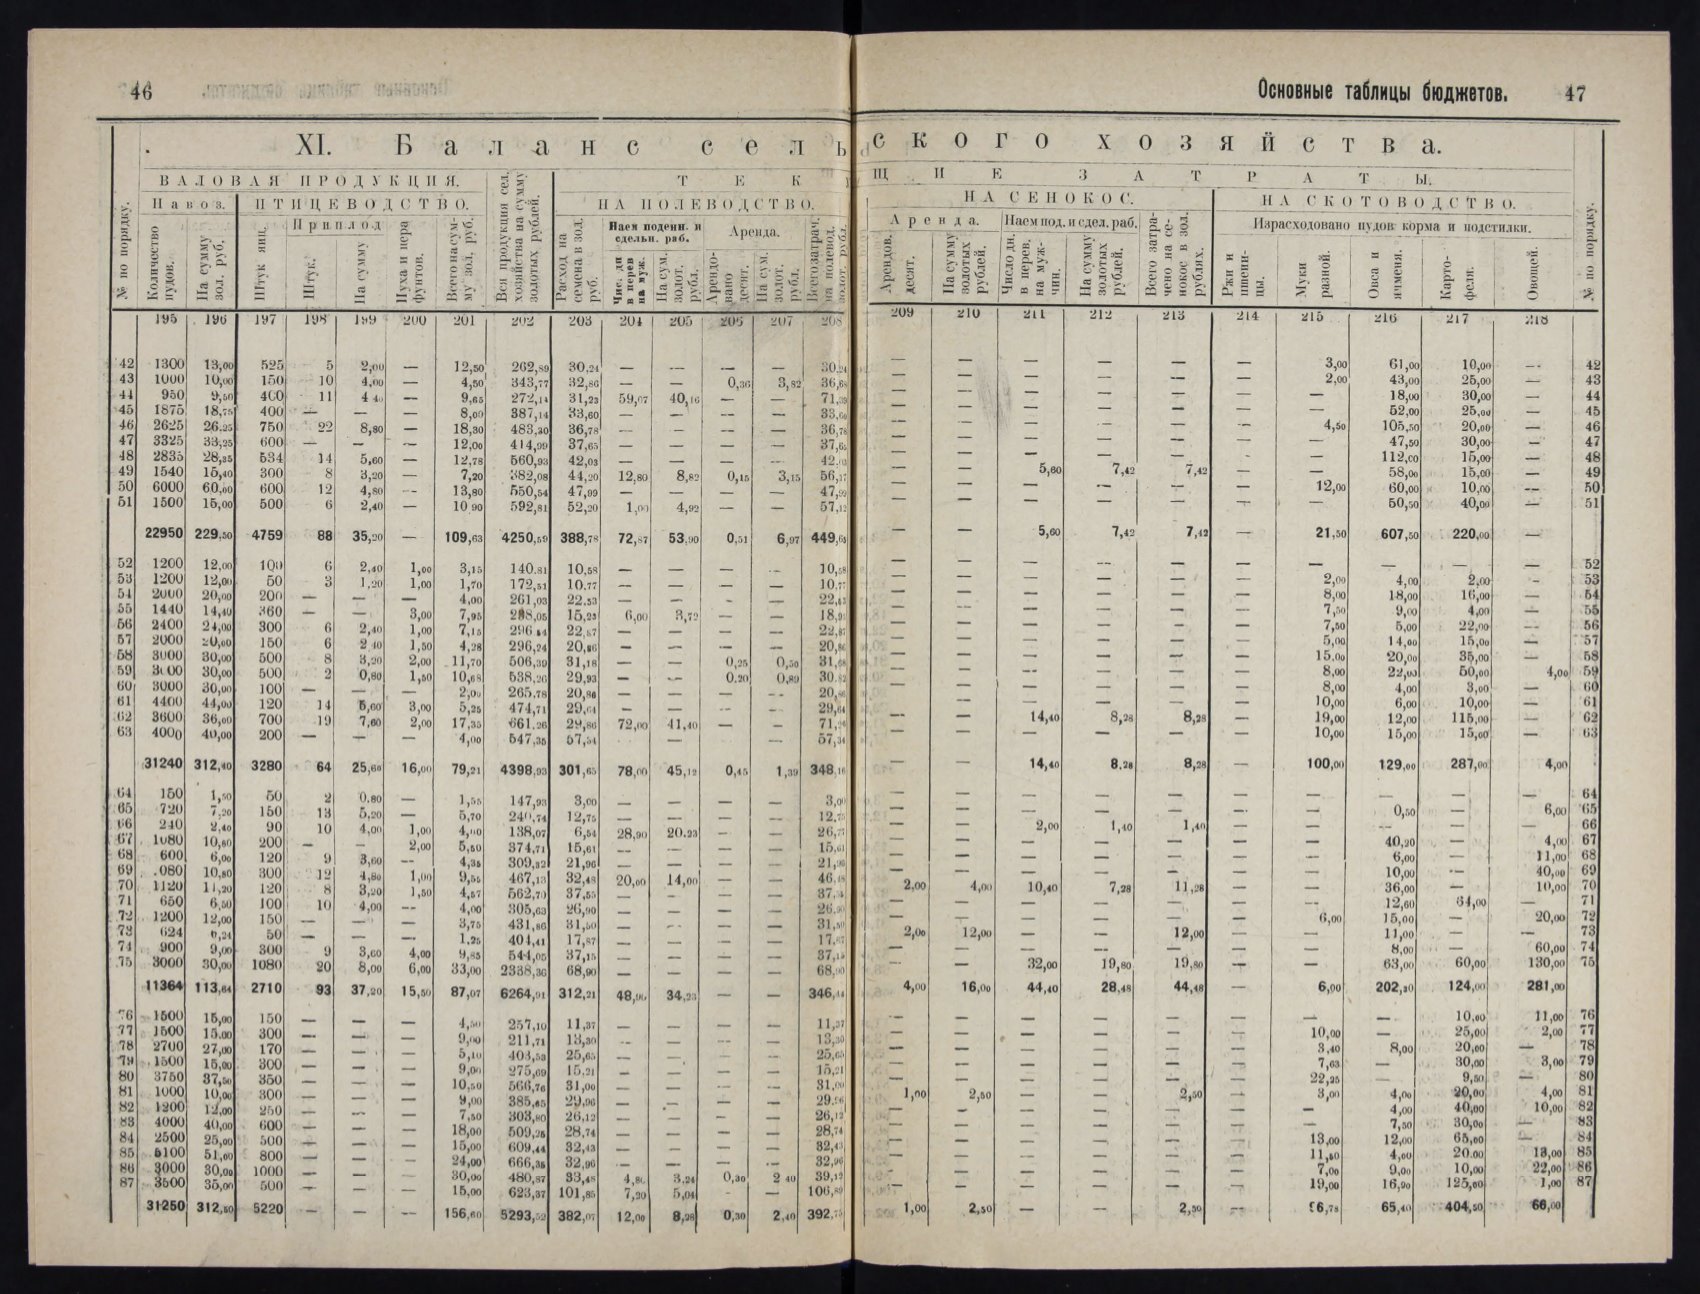 46
Основные таблицы бюджетов. 47
XI. Баланс сельского хозяйства.
ВАЛОВАЯ ПРОДУКЦИЯ.
ТЕКУЩИЕ ЗАТРАТЫ.
Навоз. ПТИЦЕВОДСТВО. НА ПОЛЕВОДСТВО. НА СЕНОКОС. НА СКОТОВОДСТВО.
Приплод Наем поденн. и сдельн. раб. Аренда. Аренда. Наем под. и сдел. раб. Израсходовано пудов корма и подстилки.
№ по порядку. Количество пудов. На сумму зол. руб. Штук яиц. Штук. На сумму Пуха и пера фунтов. Всего на сумму зол. руб. Вся продукция сел. хозяйства на сумму золотых рублей. Расход на семена в зол. руб. Чис. дн в перев на муж. На сум. золот. рубл. Арендовано десят. На сум. золот. рубл. Всего затрач. на полевод. золот. рубл.
Арендов. десят. На сумму золотых рублей. Число дн. в перев. на мужчин. На сумму золотых рублей. Всего затрачено на сенокос в зол. рублях. Ржи и пшеницы. Муки разной. Овса и ячменя. Картофеля. Овощей. № по порядку.
195 196 197 198 199 200 201 202 203 204 205 206 207 208 209 210 211 212 213 214 215 216 217 218
42 1300 13,00 525 5 2,00 — 12,50 262,89 30,24 — — — — 30,24 — — — — — — 3,00 61,00 10,00 — 42
43 1000 10,00 150 10 4,00 — 4,50 343,77 32,86 — — 0,36 3,82 36,68 — — — — — — 2,00 43,00 25,00 — 43
44 950 9,50 400 11 4,40 — 9,65 272,14 31,23 59,07 40,16 — — 71,39 — — — — — — — 18,00 30,00 — 44
45 1875 18,75 400 — — — 8,00 387,14 33,60 — — — — 33,60 — — — — — — — 52,00 25,00 — 45
46 2625 26,25 750 22 8,80 — 18,30 483,30 36,78 — — — — 36,78 — — — — — — 4,50 105,50 20,00 — 46
47 3325 33,25 600 — — — 12,00 414,99 37,65 — — — — 37,65 — — — — — — — 47,50 30,00 — 47
48 2835 28,35 534 14 5,60 — 12,78 560,93 42,03 — — — — 42,03 — — — — — — — 112,00 15,00 — 48
49 1540 15,40 300 8 3,20 — 7,20 382,08 44,20 12,80 8,82 0,15 3,15 56,17 — — 5,60 7,42 7,42 — — 58,00 15,00 — 49
50 6000 60,00 600 12 4,80 — 13,80 550,54 47,99 — — — — 47,99 — — — — — — 12,00 60,00 10,00 — 50
51 1500 15,00 500 6 2,40 — 10,90 592,81 52,20 1,00 4,92 — — 57,12 — — — — — — — 50,50 40,00 — 51
22950 229,50 4759 88 35,20 — 109,63 4250,59 388,78 72,87 53,90 0,51 6,97 449,65 — — 5,60 7,42 7,42 — 21,50 607,50 220,00 —
52 1200 12,00 100 6 2,40 1,00 3,15 140,81 10,58 — — — — 10,58 — — — — — — — — — — 52
53 1200 12,00 50 3 1,20 1,00 1,70 172,51 10,77 — — — — 10,77 — — — — — — 2,00 4,00 2,00 — 53
54 2000 20,00 200 — — — 4,00 261,03 22,53 — — — — 22,53 — — — — — — 8,00 18,00 16,00 — 54
55 1440 14,40 360 — — 3,00 7,95 288,05 15,23 6,00 3,72 — — 18,95 — — — — — — 7,50 9,00 4,00 — 55
56 2400 24,00 300 6 2,40 1,00 7,15 296,64 22,87 — — — — 22,87 — — — — — — 7,50 5,00 22,00 — 56
57 2000 20,00 150 6 2,40 1,50 4,28 296,24 20,86 — — — — 20,86 — — — — — — 5,00 14,00 15,00 — 57
58 3000 30,00 500 8 3,20 2,00 11,70 506,39 31,18 — — 0,25 0,50 31,68 — — — — — — 15,00 20,00 35,00 — 58
59 3000 30,00 500 2 0,80 1,50 10,68 538,26 29,93 — — 0,20 0,89 30,82 — — — — — — 8,00 22,00 50,00 4,00 59
60 3000 30,00 100 — — — 2,00 265,78 20,86 — — — — 20,86 — — — — — — 8,00 4,00 3,00 — 60
61 4400 44,00 120 14 5,60 3,00 5,25 474,71 29,64 — — — — 29,64 — — — — — — 10,00 6,00 10,00 — 61
62 3600 36,00 700 19 7,60 2,00 17,35 661,26 29,86 72,00 41,40 — — 71,26 — — 14,40 8,28 8,28 — 19,00 12,00 115,00 — 62
63 4000 40,00 200 — — — 4,00 547,35 57,34 — — 57,34 — — — — — — 10,00 15,00 15,00 — 63
31240 312,40 3280 64 25,60 16,00 79,21 4398,93 301,65 78,00 45,12 0,45 1,39 348,16 — — 14,40 8,28 8,28 — 100,00 129,00 287,00 4,00
64 150 1,50 50 2 0,80 — 1,55 147,93 3,00 — — — — 3,00 — — — — — — — — — — 64
65 720 7,20 150 13 5,20 — 5,70 240,74 12,75 — — — — 12,75 — — — — — — — 0,50 — 6,00 65
66 240 2,40 90 10 4,00 1,00 4,00 138,07 6,54 28,90 20,23 — — 26,77 — — 2,00 1,40 1,40 — — — — — 66
67 1080 10,80 200 — — 2,00 5,50 374,71 15,61 — — — — 15,61 — — — — — — — 40,20 — 4,00 67
68 600 6,00 120 9 3,60 — 4,35 309,32 21,96 — — — — 21,96 — — — — — — — 6,00 — 11,00 68
69 1080 10,80 300 12 4,80 1,00 9,55 467,13 32,48 20,00 14,00 — — 46,48 — — — — — — — 10,00 — 40,00 69
70 1120 11,20 120 8 3,20 1,50 4,57 562,70 37,55 — — — — 37,55 2,00 4,00 10,40 7,28 11,28 — — 36,00 — 10,00 70
71 650 6,50 100 10 4,00 — 4,00 305,63 26,90 — — — — 26,90 — — — — — — — 12,60 64,00 — 71
72 1200 12,00 150 — — — 3,75 431,86 31,50 — — — — 31,50 — — — — — — 6,00 15,00 — 20,00 72
73 624 6,24 50 — — — 1,25 404,41 17,87 — — — — 17,87 2,00 12,00 — — 12,00 — — 11,00 — — 73
74 900 9,00 300 9 3,60 4,00 9,85 544,05 37,15 — — — — 37,15 — — — — — — — 8,00 — 60,00 74
75 3000 30,00 1080 20 8,00 6,00 33,00 2338,36 68,90 — — — — 68,90 — — 32,00 19,80 19,80 — — 63,00 60,00 130,00 75
11364 113,64 2710 93 37,20 15,50 87,07 6264,91 312,21 48,90 34,23 — — 346,44 4,00 16,00 44,40 28,48 44,48 — 6,00 202,30 124,00 281,00
76 1500 15,00 150 — — — 4,50 257,10 11,37 — — — — 11,37 — — — — — — — — 10,00 11,00 76
77 1500 15,00 300 — — — 9,00 211,71 13,30 — — — — 13,30 — — — — — — 10,00 — 25,00 2,00 77
78 2700 27,00 170 — — — 5,10 403,53 25,65 — — — — 25,65 — — — — — — 3,40 8,00 20,00 — 78
79 1500 15,00 300 — — — 9,00 275,69 15,21 — — — — 15,21 — — — — — — 7,63 — 30,00 3,00 79
80 3750 37,50 350 — — — 10,50 566,76 31,00 — — — — 31,00 — — — — — — 22,25 — 9,50 — 80
81 1000 10,00 300 — — — 9,00 385,65 29,96 — — — — 29,96 1,00 2,50 — — 2,50 — 3,00 4,00 20,00 4,00 81
82 1200 12,00 250 — — — 7,50 303,80 26,12 — — — — 26,12 — — — — — — — 4,00 40,00 10,00 82
83 4000 40,00 600 — — — 18,00 509,25 28,74 — — — — 28,74 — — — — — — — 7,50 30,00 — 83
84 2500 25,00 500 — — — 15,00 609,44 32,43 — — — — 32,43 — — — — — — 13,00 12,00 65,00 — 84
85 5100 51,00 800 — — — 24,00 666,35 32,96 — — — — 32,96 — — — — — — 11,50 4,00 20,00 13,00 85
86 3000 30,00 1000 — — — 30,00 480,87 33,48 4,80 3,24 0,30 2,40 39,12 — — — — — — 7,00 9,00 10,00 22,00 86
87 3500 35,00 500 — — — 15,00 623,37 101,85 7,20 5,04 - — 106,89 — — — — — — 19,00 16,90 125,00 1,00 87
31250 312,50 5220 — — — 156,60 5293,52 382,07 12,00 8,28 0,30 2,40 392,75 1,00 2,50 — — 2,50 — 96,78 65,40 404,50 66,00